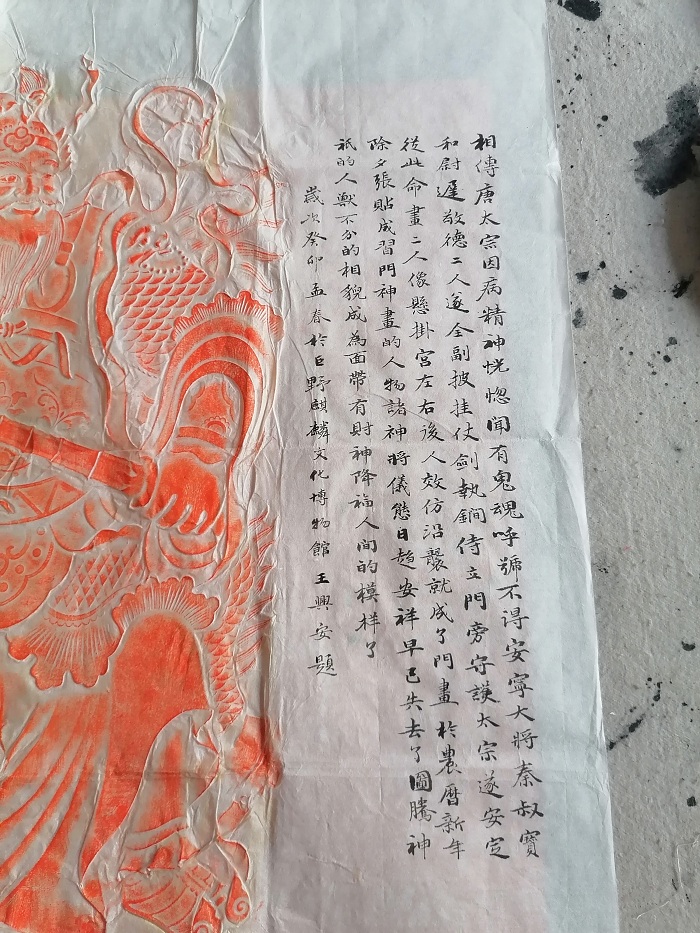 相傳唐太宗因病精神恍惚聞有鬼魂呼號不得安寧大將秦叔寶
和尉遲敬德二人遂全副披挂仗劍執鐧侍立門旁守護太宗遂安定
從此命畫二人像懸掛宮左右後人效仿沿襲就成了門畫於農曆新年
除夕張貼成習門神畫的人物諸神將儀態日趨安祥早已失去了圖騰神
祇的人獸不分的相貌成為面帶有財神降福人間的模样了
歲次癸卯孟春於巨野麒麟文化博物館王興安題